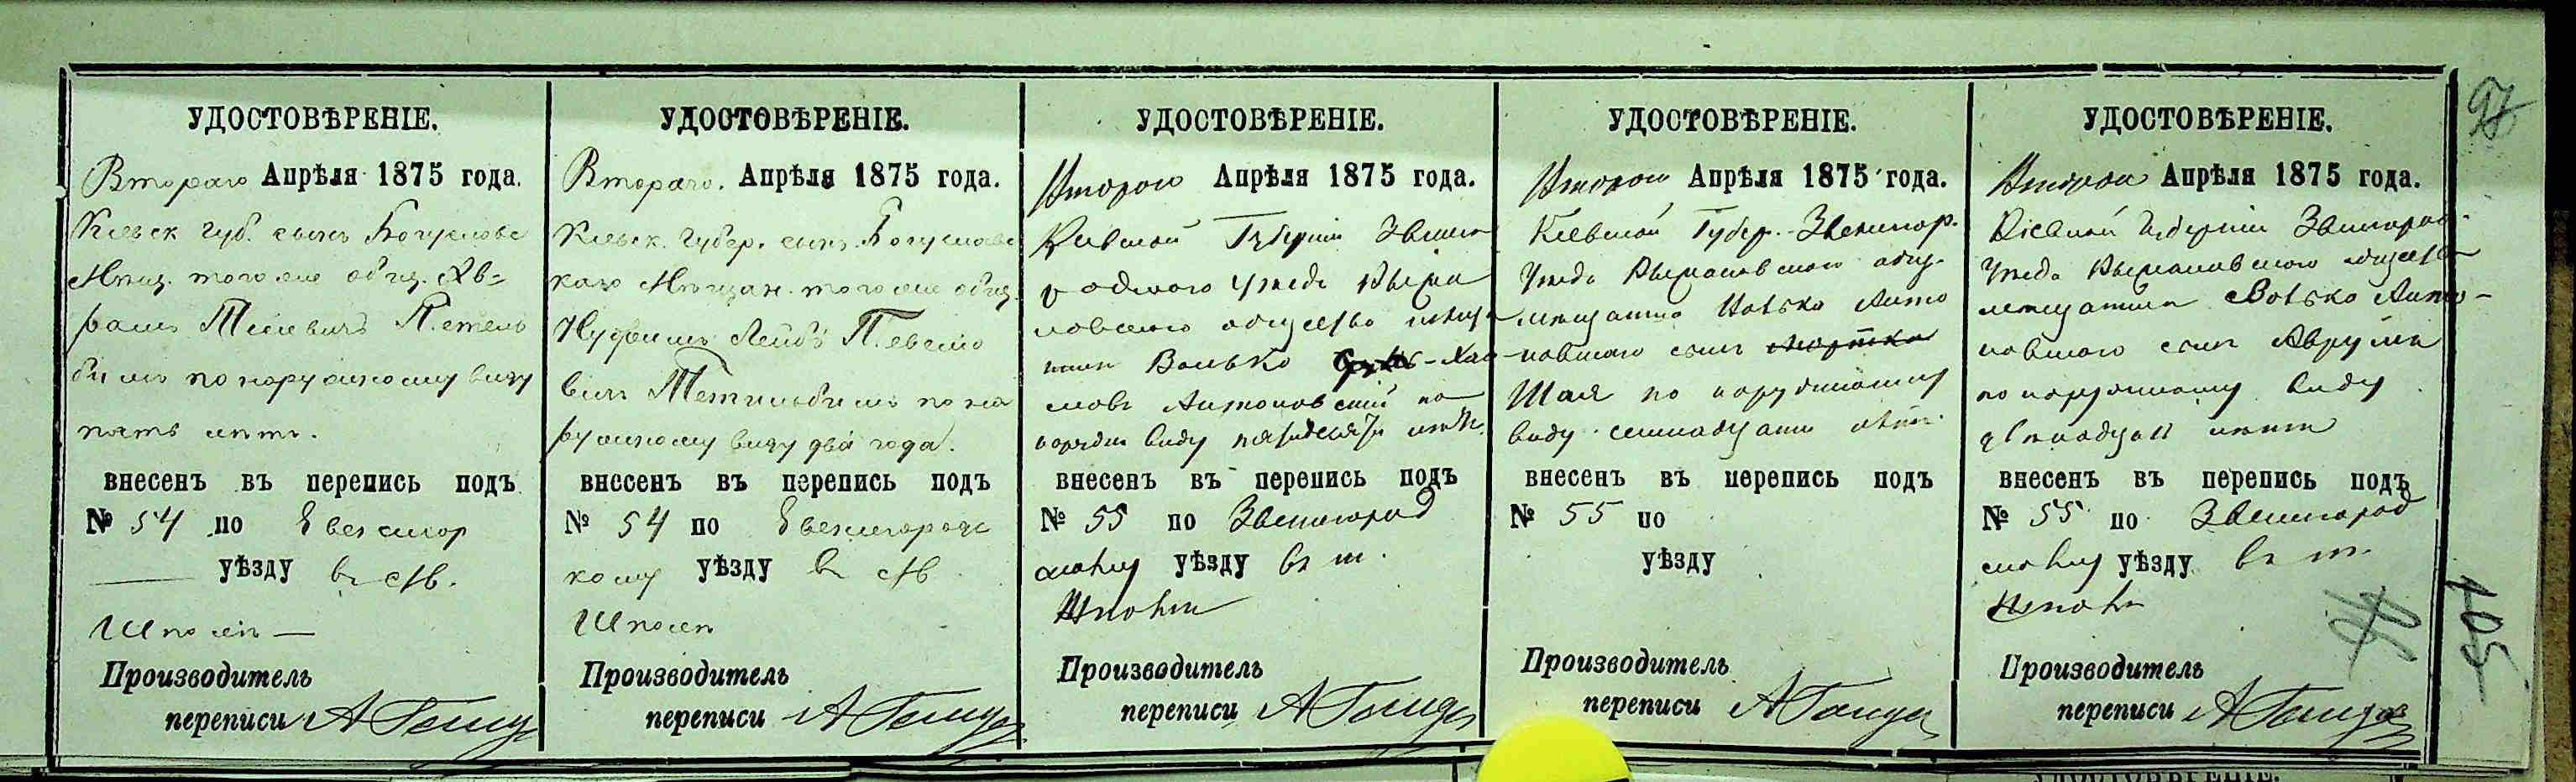 УДОСТОВѢРЕНІЕ.
Втораго Апрѣля 1875 года.
Кіевск губ. сынъ Богуславс
Мѣщ. того же общ. Ав-
рамъ
по наружному виду
пять лѣтъ.
внесенъ въ перепись подъ
№ 54 по Звенигор
уѣзду въ М.
Шполѣ
Производитель
переписи
УДОСТОВѢРЕНІЕ.
Втораго. Апрѣля 1875 года.
Кіевск. Губер. сынъ. Богуславс
каго Мѣщан. того же общ.
Лейбъ
по на
ружному виду два года.
внесенъ въ перепись подъ
№ 54 по Звенигородс
кому уѣзду въ М
Шполѣ
Производитель
переписи
УДОСТОВѢРЕНІЕ.
Второго Апрѣля 1875 года.
Кіевской Губерніи Звени
родского Уѣзда
общества
Волько
Антоновскій по
виду пятьдесятъ лѣтъ
внесенъ въ перепись подъ
№ 55 по Звенигород
скому уѣзду въ м.
Шполѣ
Производитель
переписи
УДОСТОВѢРЕНІЕ.
Второго Апрѣля 1875 года.
Кіевской Губер. Звенигор.
Уѣзда общ.
мѣщанина Волько Анто
новского сынъ
Шая по наружному
виду семнадцати лѣтъ.
внесенъ въ перепись подъ
№ 55 по
уѣзду
Производитель
переписи
УДОСТОВѢРЕНІЕ.
Второго Апрѣля 1875 года.
Кіевской Губерніи Звенигород
Уѣзда общества
мѣщанина Волько Анто-
новского сынъ Аврумъ
по наружному виду
лѣтъ
внесенъ въ перепись подъ
№ 55 по Звенигород
скому уѣзду въ м.
Шполѣ
Производитель
переписи
97
105